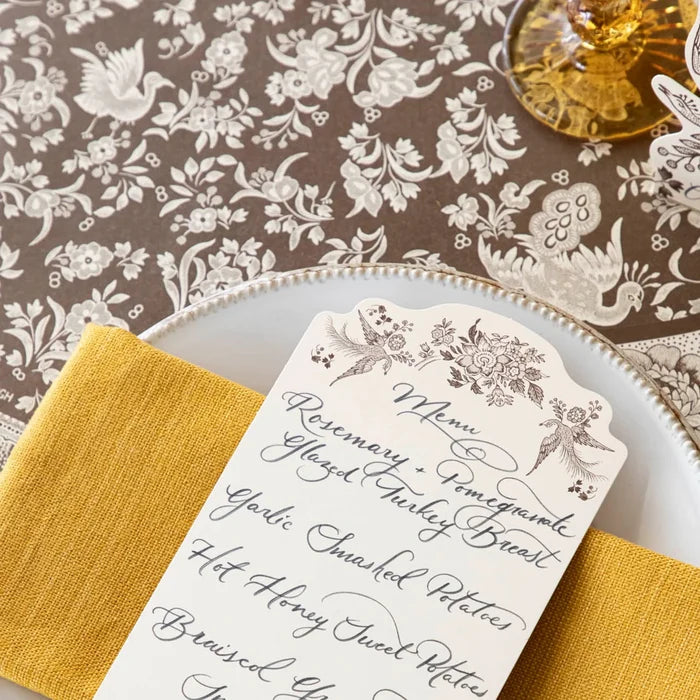 Menu
Rosemary + Pomegranate
Glazed Turkey Breast
Garlic Smashed Potatoes
Hot Honey Sweet Potatoes